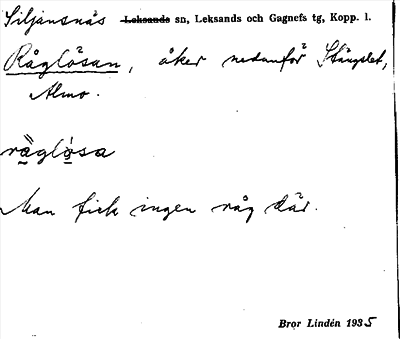 Siljansnäs Leksands sn, Leksands och Gagnefs tg, Kopp. l.
Råglösan, åker nedanför Stängslet,
Almo.
råglösa
Man fick ingen råg där.
Bror Lindén 1935